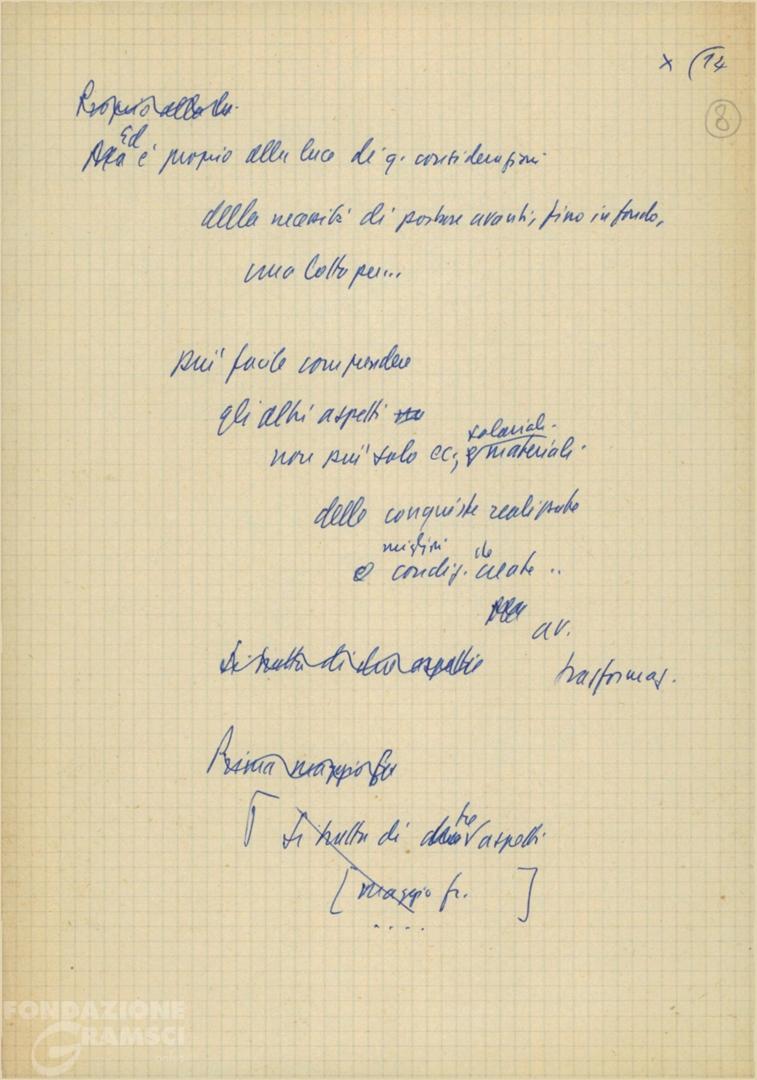 x (14
8
Proprio alla lu.
Ed
è proprio alla luce di q. considerazioni
della necessità di portare avanti, fino in fondo,
una lotta per...
più facile comprendere
gli altri aspetti
salariali.
non più solo ec., e materiali.
delle conquiste realizzate
migliori
e condiz. create ..
av.
trasformaz.
Si tratta di due aspetti
Prima maggio fr
Si tratta di due tre aspetti
[maggio fr. ]
....
FONDAZIONE
GRAMSCI